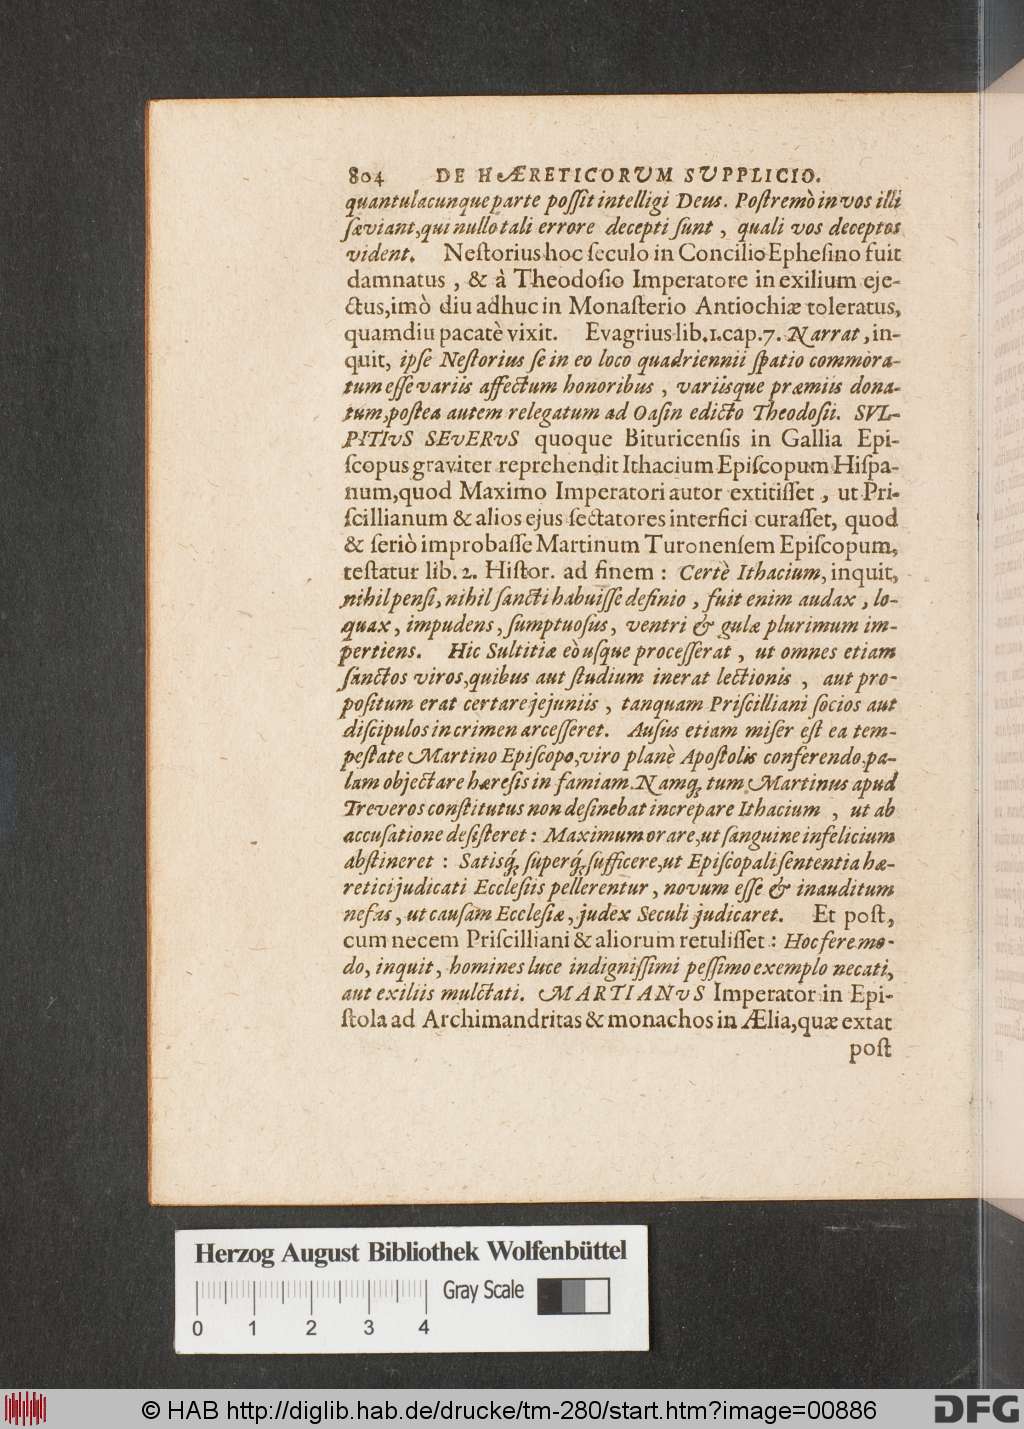 804 DE HÆRETICORVM SVPPLICIO.
quantulacunque parte poſſit intelligi Deus. Poſtremò in vos illi
ſæviant, qui nullo tali errore decepti ſunt, quali vos deceptos
vident. Neſtorius hoc ſeculo in Concilio Epheſino fuit
damnatus, & à Theodoſio Imperatore in exilium eje-
ctus, imò diu adhuc in Monaſterio Antiochiæ toleratus,
quamdiu pacatè vixit. Evagrius lib. 1. cap. 7. Narrat, in-
quit, ipſe Neſtorius ſe in eo loco quadriennii ſpatio commora-
tum eſſe variis affectum honoribus, variisque præmiis dona-
tum, poſtea autem relegatum ad Oaſin edicto Theodoſii. SVL-
PITIVS SEVERVS quoque Bituricenſis in Gallia Epi-
ſcopus graviter reprehendit Ithacium Epiſcopum Hiſpa-
num, quod Maximo Imperatori autor extitiſſet, ut Pri-
ſcillianum & alios ejus ſectatores interfici curaſſet, quod
& ſeriò improbaſſe Martinum Turonenſem Epiſcopum,
teſtatur lib. 2. Hiſtor. ad finem: Certè Ithacium, inquit,
nihil penſi, nihil ſancti habuiſſe definio, fuit enim audax, lo-
quax, impudens, ſumptuoſus, ventri & gulæ plurimum im-
pertiens. Hic Sultitiæ eò uſque proceſſerat, ut omnes etiam
ſanctos viros, quibus aut ſtudium inerat lectionis, aut pro-
poſitum erat certare jejuniis, tanquam Priſcilliani ſocios aut
diſcipulos in crimen arceſſeret. Auſus etiam miſer eſt ea tem-
peſtate Martino Epiſcopo, viro planè Apoſtolis conferendo pa-
lam objectare hæreſis in famiam. Namq́; tum Martinus apud
Treveros conſtitutus non deſinebat increpare Ithacium, ut ab
accuſatione deſiſteret: Maximum orare, ut ſanguine infelicium
abſtineret: Satisq́; ſuperq́; ſufficere, ut Epiſcopali ſententia hæ-
retici judicati Eccleſiis pellerentur, novum eſſe & inauditum
nefas, ut cauſam Eccleſiæ, judex Seculi judicaret. Et poſt,
cum necem Priſcilliani & aliorum retuliſſet: Hoc fere mo-
do, inquit, homines luce indigniſſimi peſſimo exemplo necati,
aut exiliis mulctati. MARTIANVS Imperator in Epi-
ſtola ad Archimandritas & monachos in Ælia, quæ extat
poſt
Herzog August Bibliothek Wolfenbüttel
Gray Scale
0 1 2 3 4
© HAB http://diglib.hab.de/drucke/tm-280/start.htm?image=00886
DFG